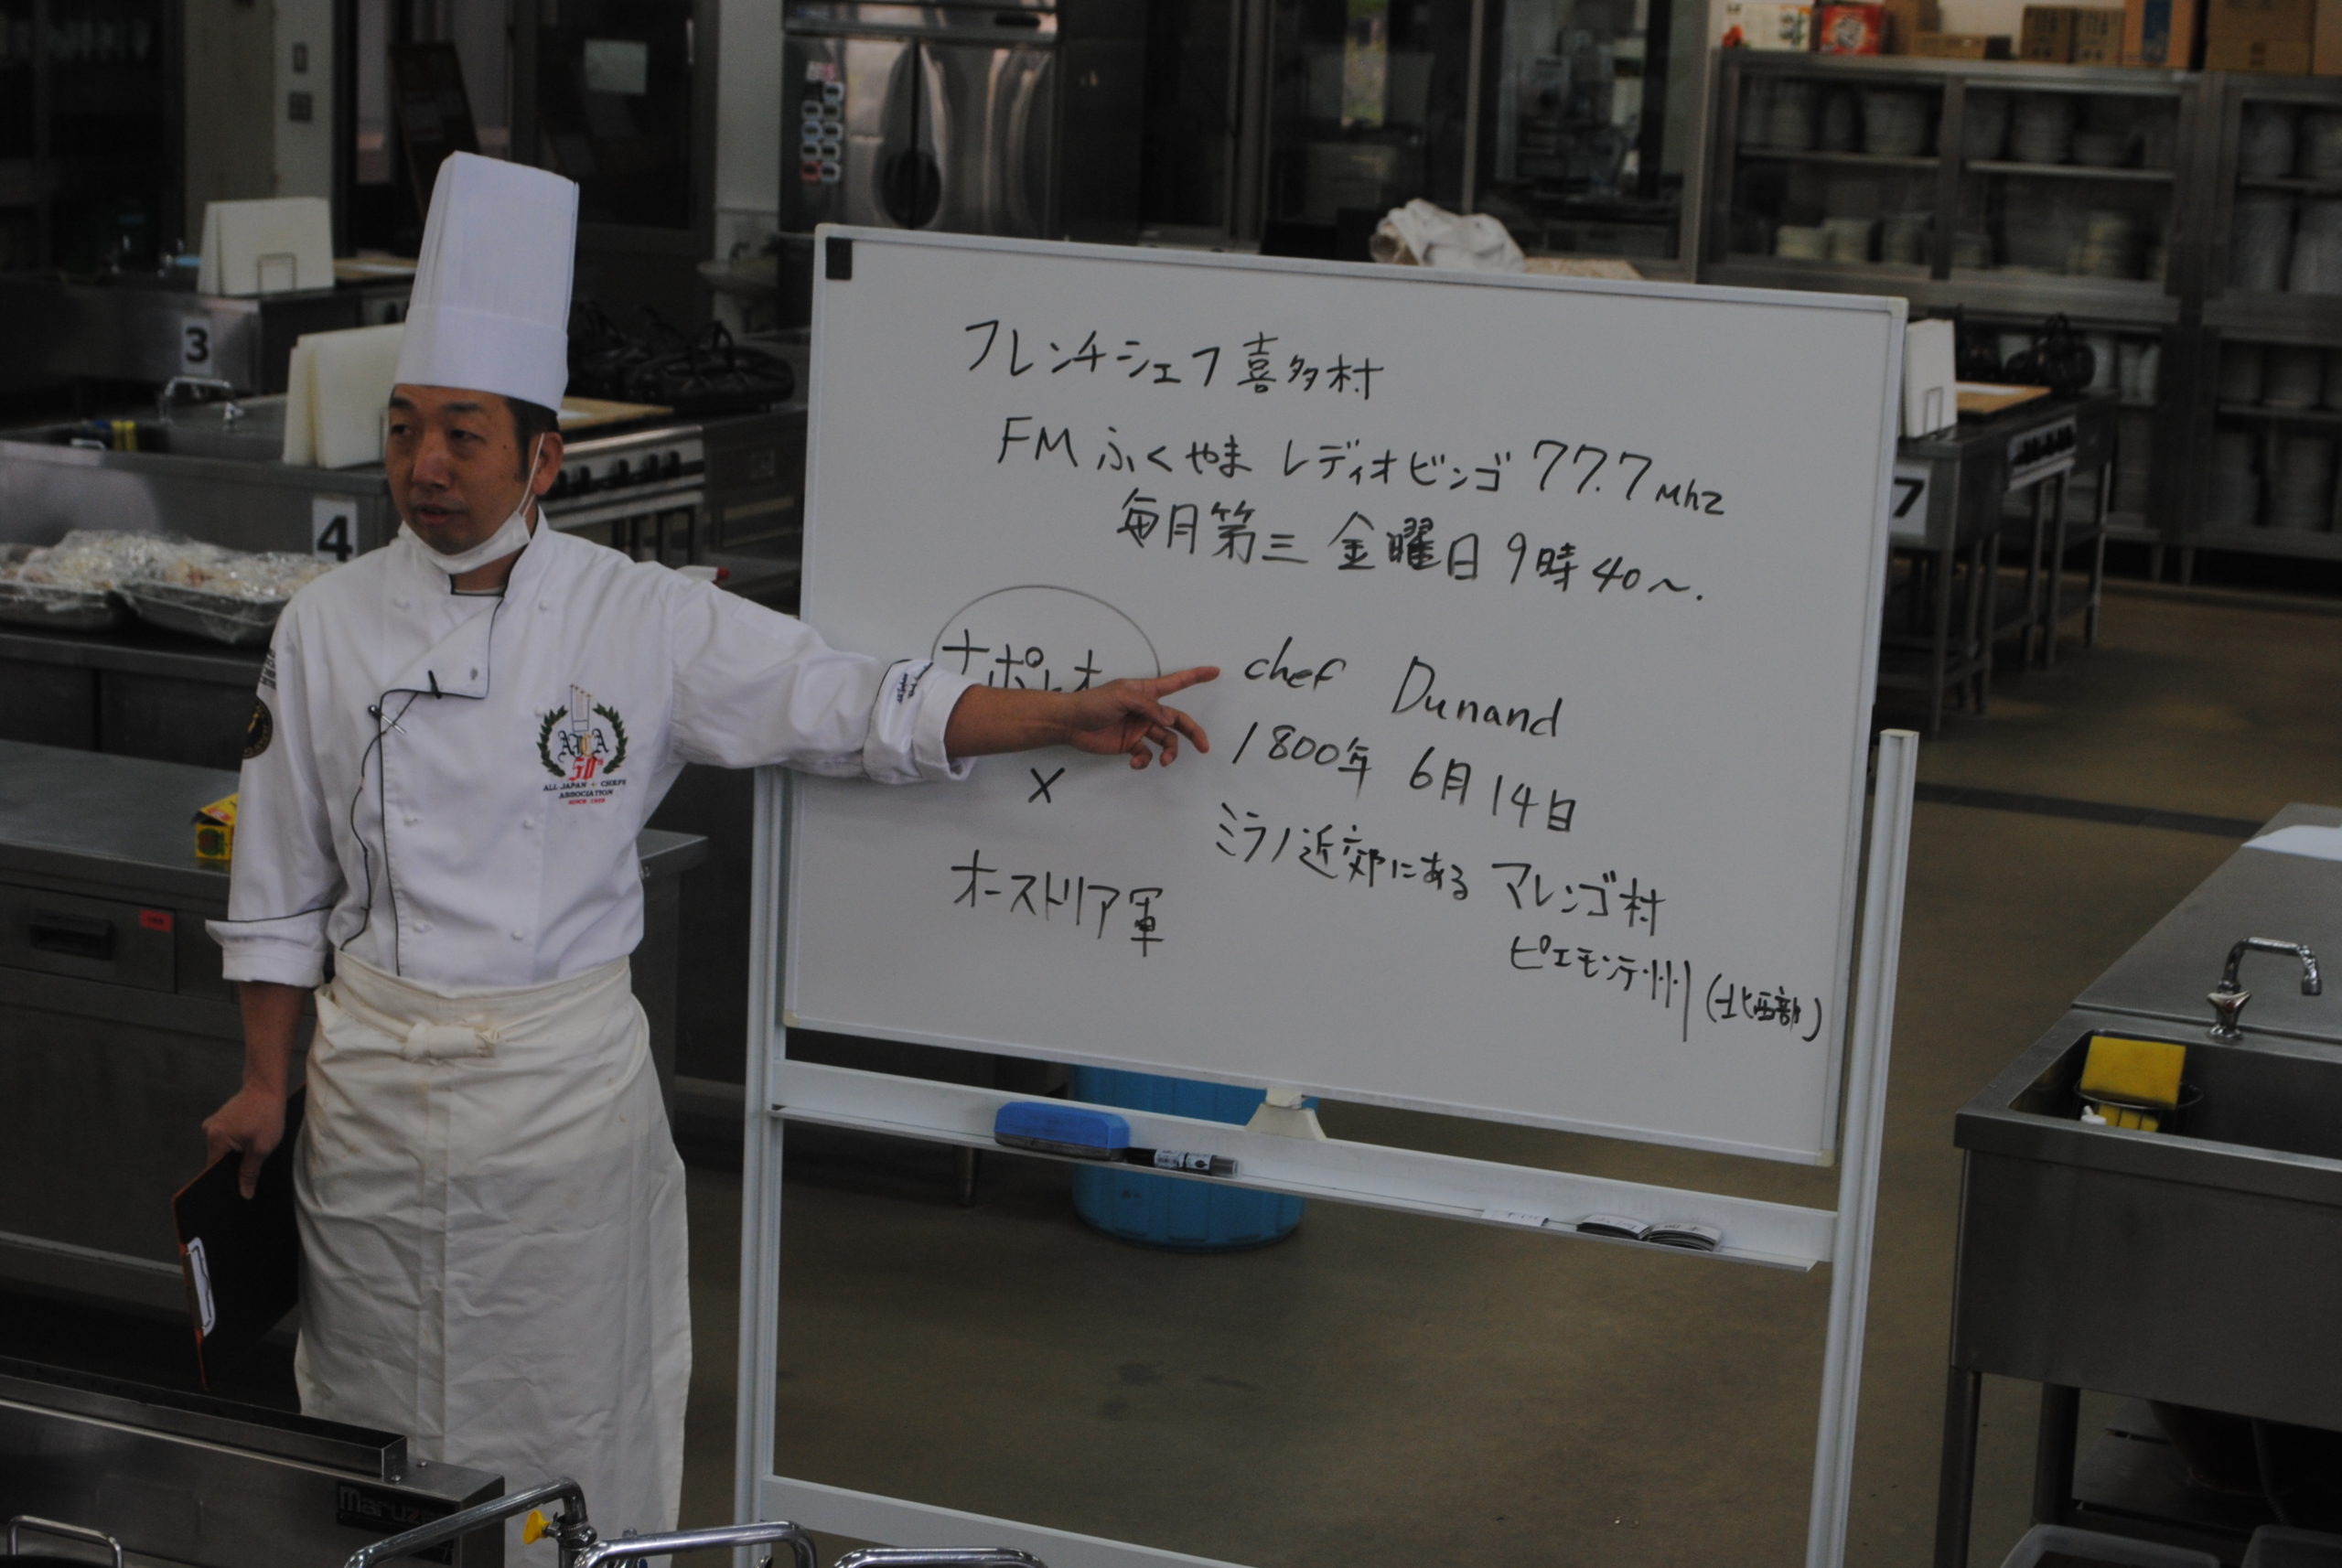 フレンチシェフ喜多村
FMふくやま レディオビンゴ 77.7Mhz
毎月第三 金曜日 9時40〜.
ナポレオ
×
オーストリア軍
chef Dunand
1800年 6月14日
ミラノ近郊にある マレンゴ村
ピエモンテ州 (北西部)
3
4
7
50th
ALL JAPAN CHEFS
ASSOCIATION
Maruze